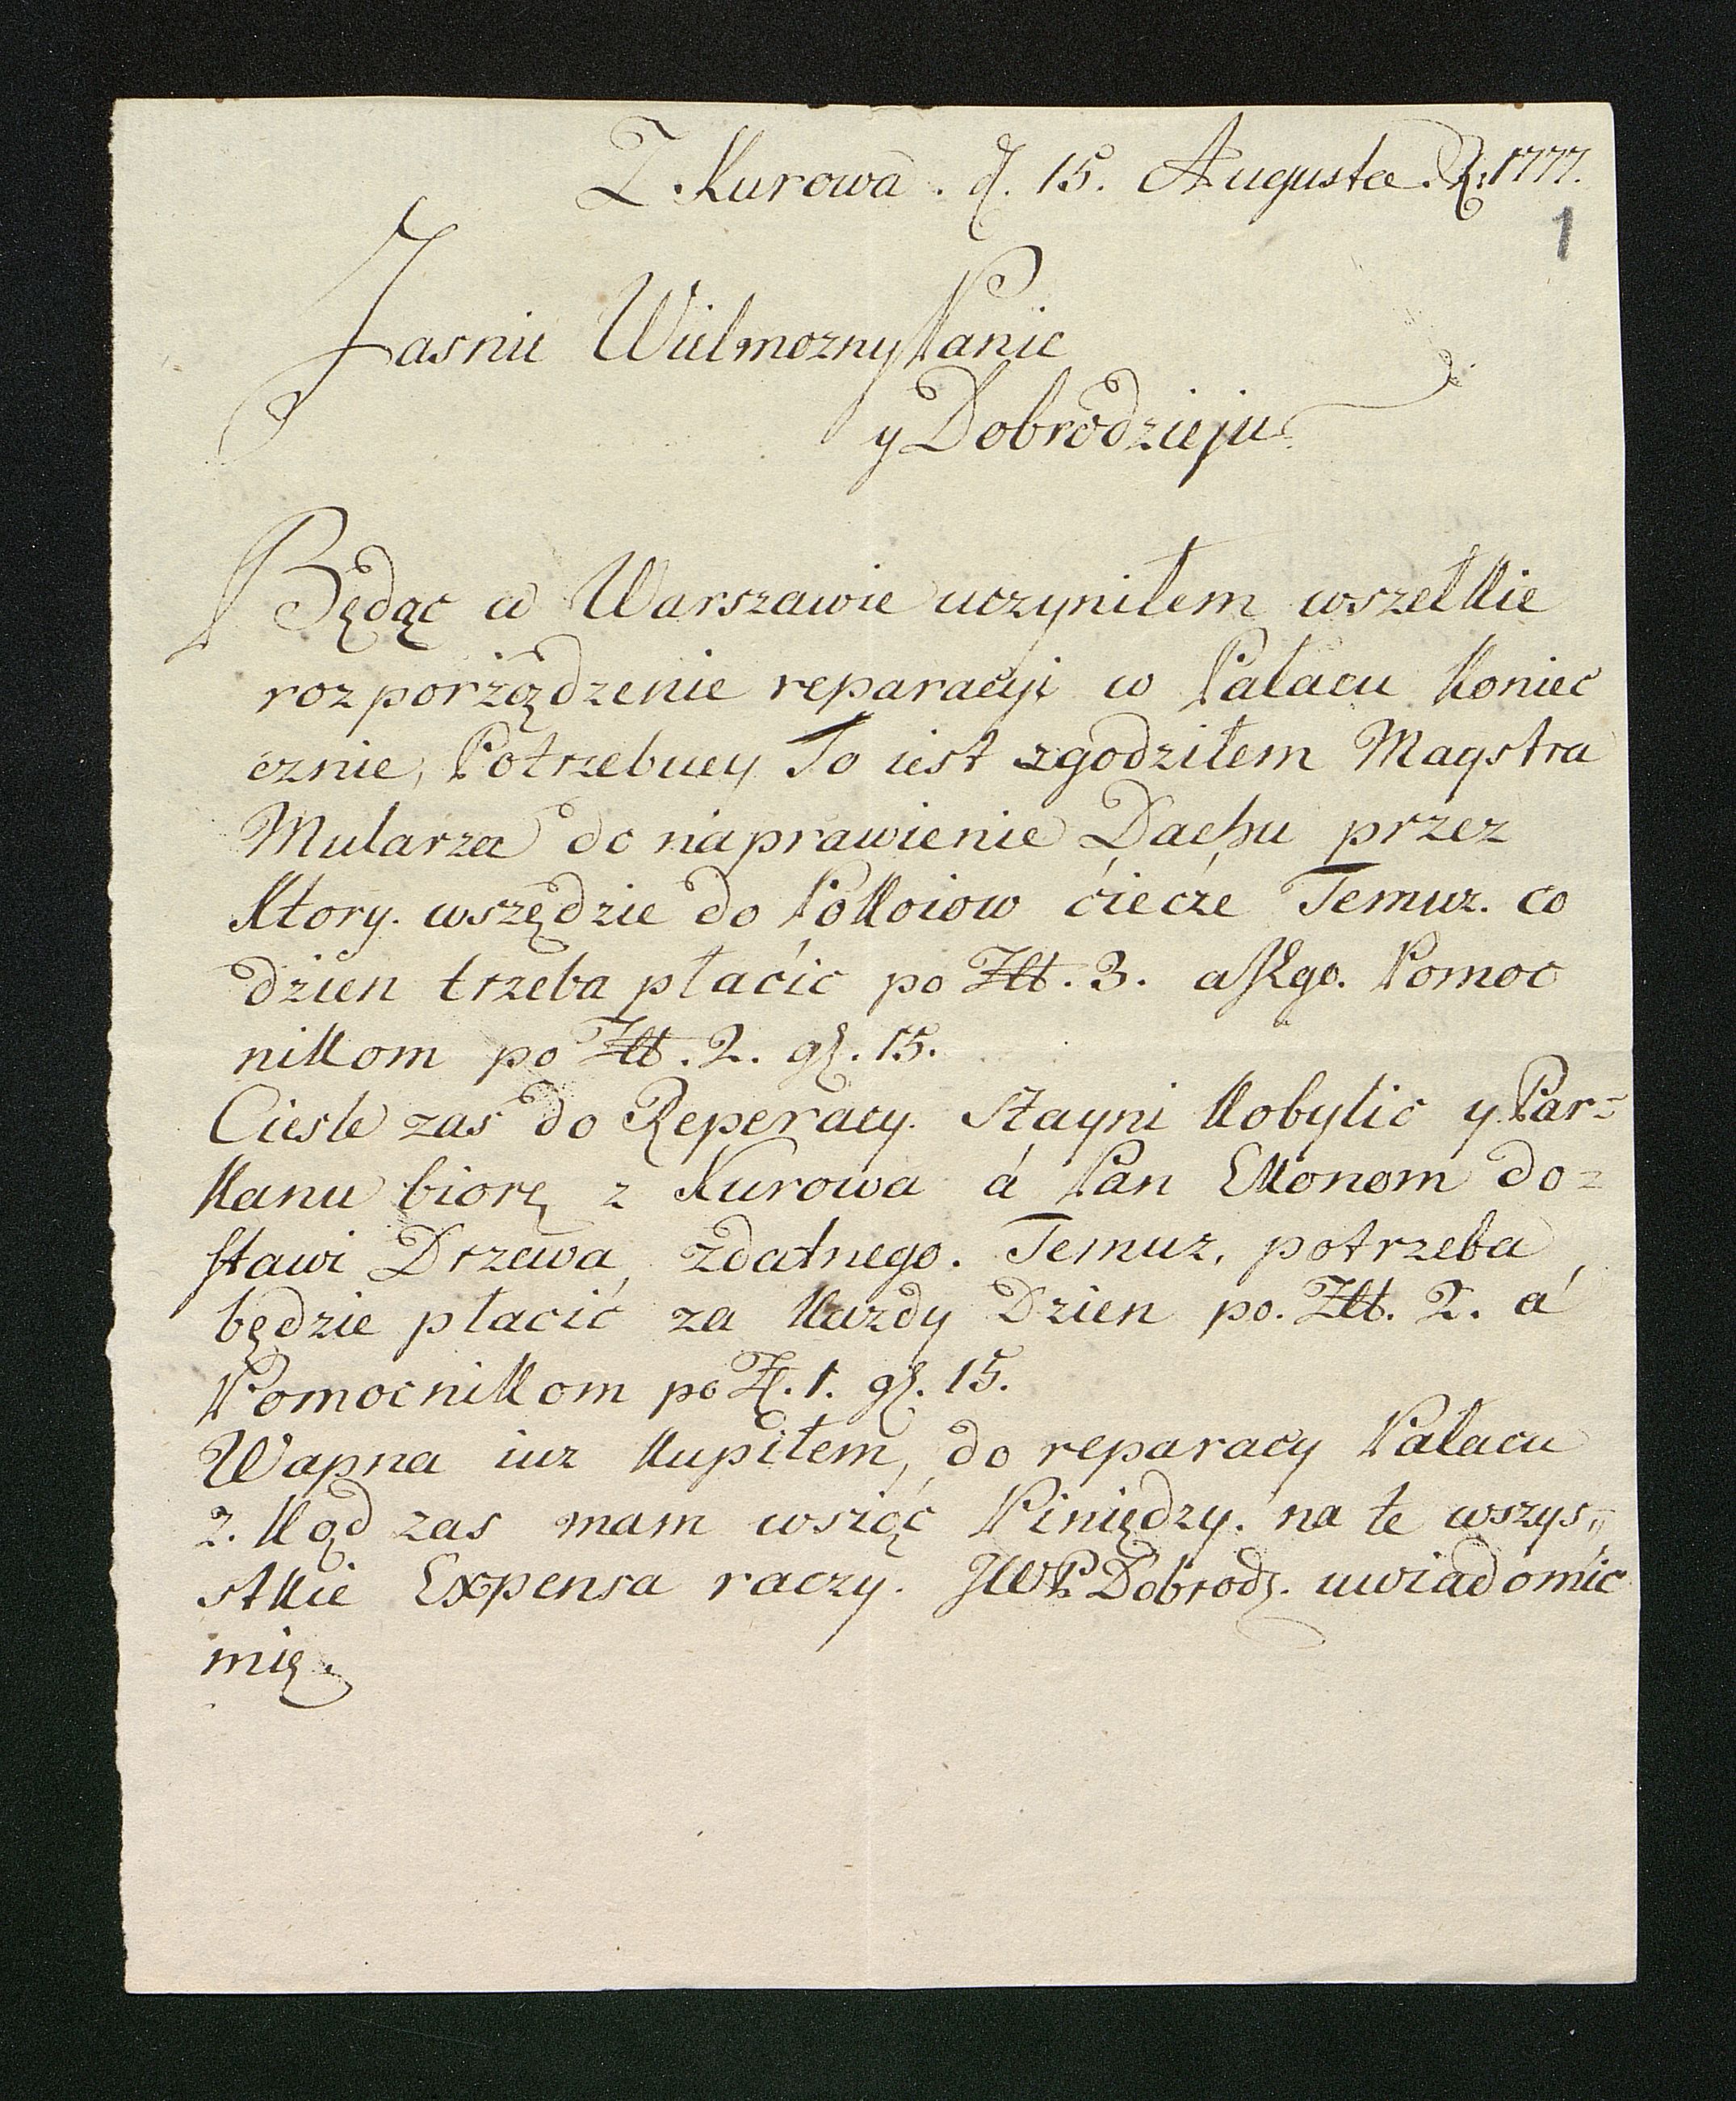 Z. Kurowa. d. 15. Augusta. R. 1777.
1
Jasnie Wielmozny Panie
y Dobrodzieju
Będąc w Warszawie uczyniłem wszelkie
rozporżądzenie reparacyi w Pałacu Koniec
cznie, Potrzebuey To iest zgodziłem Maystra
Mularza do naprawienie Dachu przez
Ktory. wszędzie do Pokoiow ćiecże Temuz. co
dzien trzeba płaćic po Złt. 3. Pomoc
nikom po Złt. 2. gr. 15.
Ciesle zas do Reperacy. Stayni Kobylic y. Par-
kanu biorę z Kurowa á Pan Ekonom do=
stawi Drzewa, zdatnego. Temuz, potrzeba
będzie płacić za Kazdy Dzien po. Złt. 2. á
Pomocnikom po Zł. 1. gr. 15.
Wapna iuz Kupiłem, do reparacy Pałacu
z. Kąd zas mam wsziąć Piniędzy. na te wszys„
stkie Expensa raczy. JWP. Dobrodz. uwiadomić
mię.